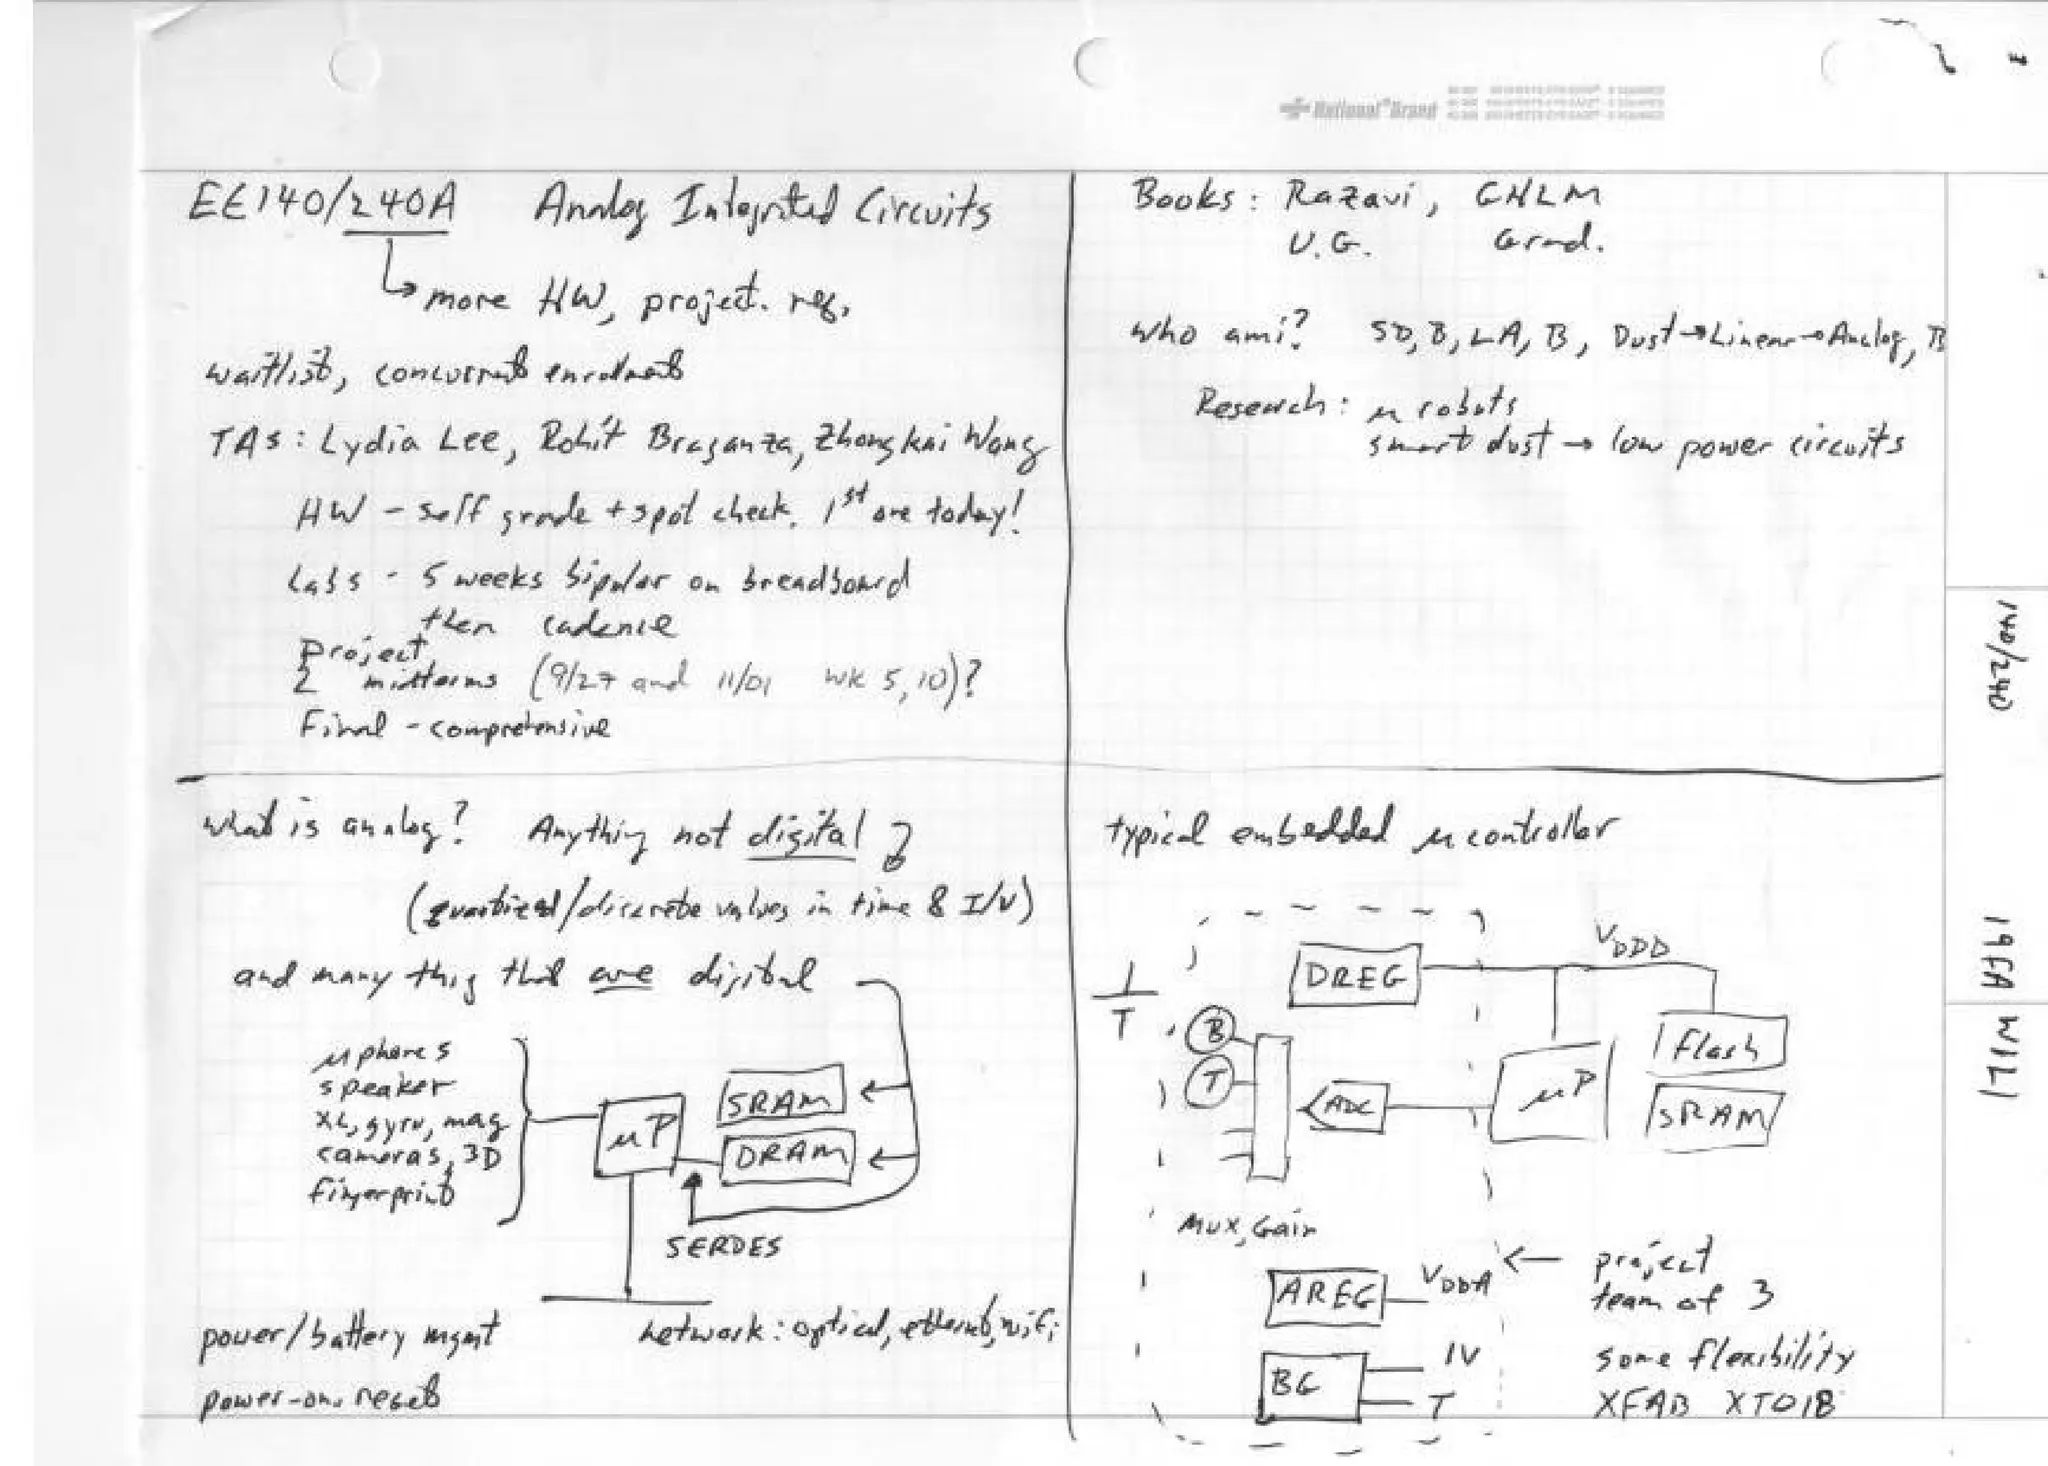 National Brand
EE140/240A Analog Integrated Circuits
↳ more HW, project. req.
waitlist, concurrent enrollment
TAs: Lydia Lee, Rohit Braganza, Zhongkai Wang
HW - self grade + spot check. 1st one today!
Labs - 5 weeks bipolar on breadboard
then cadence
Project
2 midterms (9/27 and 11/01 wk 5, 10)?
Final - comprehensive
Books: Razavi, GHLM
U.G. Grad.
who am i? SD, B, LA, B, Dust→Linear→Analog, B
Research: μ robots
smart dust → low power circuits
what is analog? Anything not digital
(quantized/discrete values in time & I/V)
and many thig that are digital
μphones
speaker
XL, gyro, mag
cameras, 3D
fingerprint
μP
SRAM
DRAM
SERDES
network: optical, ethernet, wifi
power/battery mgmt
power-on. reset
typical embedded μcontroller
DREG
VDDD
1/T
B
T
ADC
μP
Flash
SRAM
Mux, Gain
AREG
VDDA
BG
1V
T
← project
team of 3
some flexibility
XFAB XT018
140/240
19FA
W1L1